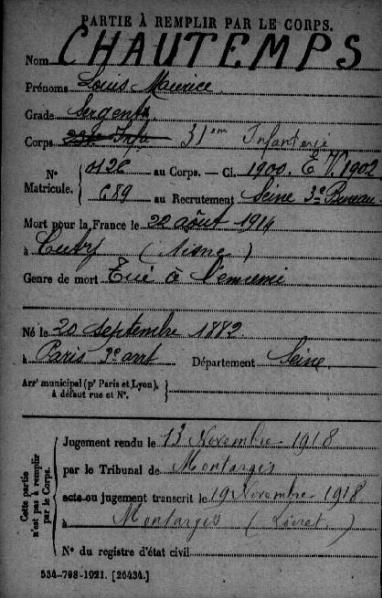 PARTIE À REMPLIR PAR LE CORPS.
Nom CHAUTEMPS
Prénoms Louis Maurice
Grade Sergent
Corps 31em Infanterie
N° Matricule. { 0126 au Corps. — Cl. 1900. E.V. 1902
689 au Recrutement Seine 3e Bureau
Mort pour la France le 22 août 1914
à (Aisne)
Genre de mort Tué à l'ennemi
Né le 20 septembre 1882
à Paris 3e arrt Département Seine
Arrt municipal (pr Paris et Lyon), à défaut rue et N°.
Cette partie n'est pas à remplir par le Corps.
Jugement rendu le 13 Novembre 1918
par le Tribunal de Montargis
acte ou jugement transcrit le 19 Novembre 1918
à Montargis (Loiret)
N° du registre d'état civil
534-708-1921. [26434.]